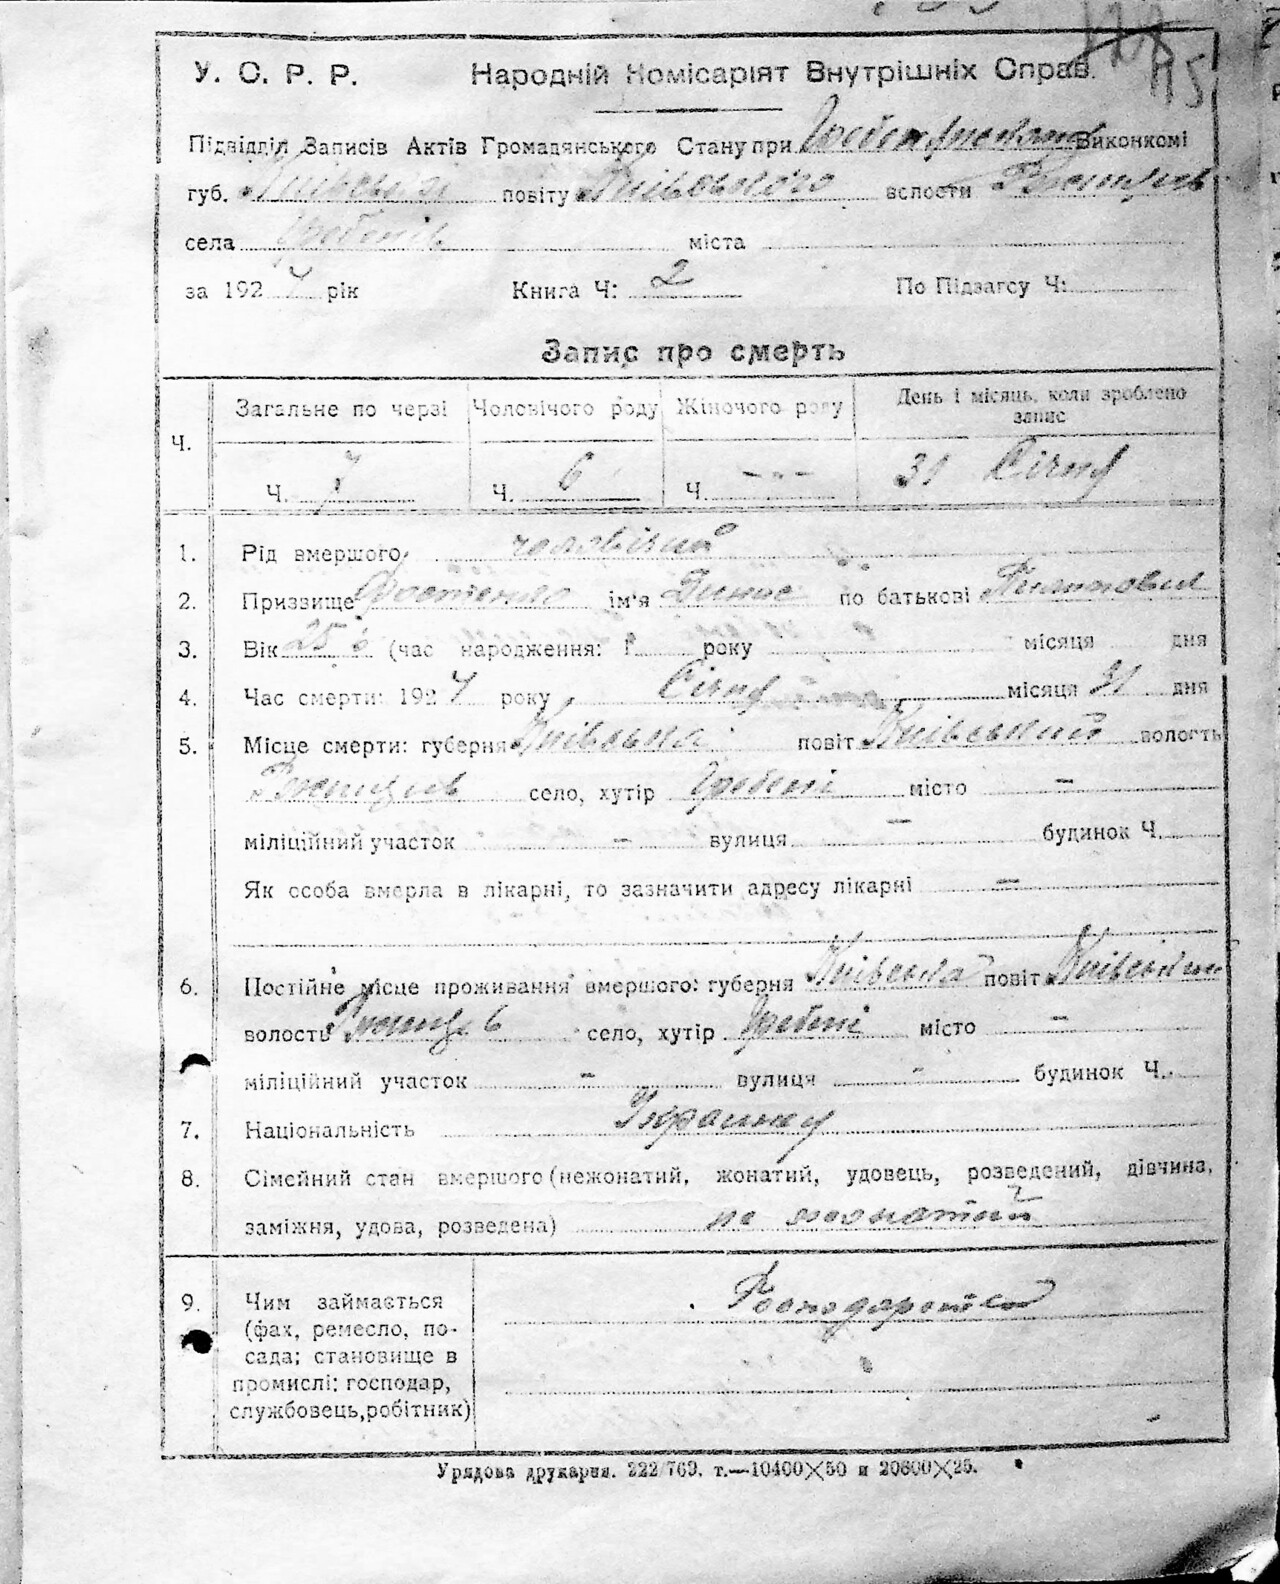 128
115
У. С. Р. Р. Народній Комісаріят Внутрішніх Справ.
Підвідділ Записів Актів Громадянського Стану при Виконкомі
губ. Київській повіту Київського волости Ржищів
села Гребенів міста
за 1924 рік Книга Ч: 2 По Підзагсу Ч:
Запис про смерть
Ч. Загальне по черзі Чоловічого роду Жіночого роду День і місяць, коли зроблено запис
Ч. 7 Ч. 6 Ч. - - - 31 Січня
1. Рід вмершого чоловічий
2. Призвище Фостенко ім'я Динис по батькові Пилипович
3. Вік 25 (час народження: року місяця дня
4. Час смерти: 1924 року Січня місяця 31 дня
5. Місце смерти: губерня Київська повіт Київський волость
Ржищів село, хутір Гребені місто —
міліційний участок — вулиця — будинок Ч.
Як особа вмерла в лікарні, то зазначити адресу лікарні —
6. Постійне місце проживання вмершого: губерня Київська повіт Київський
волость Ржищів село, хутір Гребені місто —
міліційний участок - вулиця - будинок Ч.
7. Національність Украінец
8. Сімейний стан вмершого (нежонатий, жонатий, удовець, розведений, дівчина,
заміжня, удова, розведена) не жонатий
9. Чим займається
(фах, ремесло, по-
сада; становище в
промислі: господар,
службовець, робітник)
Урядова друкарня. 222/763. т.—10400×50 и 20800×25.